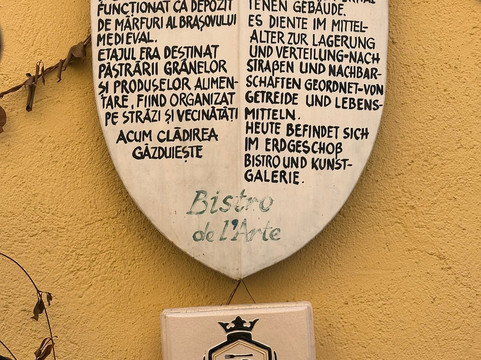 FUNCȚIONAT CA DEPOZIT
DE MĂRFURI AL BRAȘOVULUI
MEDIEVAL.
ETAJUL ERA DESTINAT
PĂSTRĂRII GRÂNELOR
ȘI PRODUSELOR ALIMEN-
TARE, FIIND ORGANIZAT
PE STRĂZI ȘI VECINĂTĂȚI
ACUM CLĂDIREA
GĂZDUIEȘTE
TENEN GEBÄUDE.
ES DIENTE IM MITTEL-
ALTER ZUR LAGERUNG
UND VERTEILUNG-NACH
STRAßEN UND NACHBAR-
SCHAFTEN GEORDNET-VON
GETREIDE UND LEBENS-
MITTELN.
HEUTE BEFINDET SICH
IM ERDGESCHOß
BISTRO UND KUNST-
GALERIE.
Bistro
de L'Arte